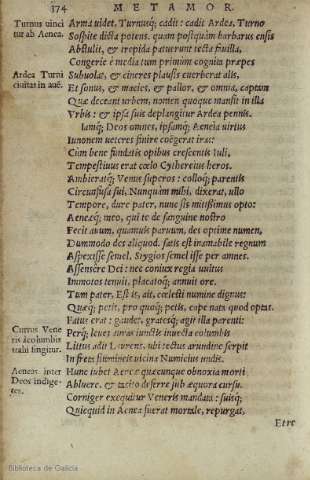 374 METAMOR.
Turnus uinci
tur ab Aenea.
Arma uidet, Turnusq; cadit: cadit Ardea, Turno
Sospite dicta potens. quam postquam barbarus ensis
Abstulit, & trepida patuerunt tecta fauilla,
Congerie è media tum primùm cognita præpes
Ardea Turni
ciuitas in auē.
Subuolat, & cineres plausis euerberat alis,
Et sonus, & macies, & pallor, & omnia, captam
Quæ deceant urbem, nomen quoque mansit in illa
Vrbis: & ipsa suis deplangitur Ardea pennis.
Iamq; Deos omnes, ipsamq; Aeneia uirtus
Iunonem ueteres finire coëgerat iras:
Cùm bene fundatis opibus crescentis Iuli,
Tempestiuus erat cœlo Cythereius heros.
Ambieratq; Venus superos: colloq; parentis
Circunfusa sui, Nunquam mihi, dixerat, ullo
Tempore, dure pater, nunc sis mitissimus opto:
Aeneæq; meo, qui te de sanguine nostro
Fecit auum, quamuis paruum, des optime numen,
Dummodo des aliquod. satis est inamabile regnum
Aspexisse semel, Stygios semel isse per amnes.
Assensere Dei: nec coniux regia uultus
Immotos tenuit, placatoq; annuit ore.
Tum pater, Est is, ait, cœlesti numine dignus:
Quæq; petit, pro quoq; petis, cape nata quod optas.
Fatus erat: gaudet, gratesq; agit illa parenti:
Currus Vene
ris à columbis
trahi fingitur.
Perq; leues auras iunctis inuecta columbis
Littus adit Laurens, ubi tectus arundine serpit
In freta flumineis uicina Numicius undis.
Aeneas inter
Deos indige-
tes.
Hunc iubet Aeneæ quæcunque obnoxia morti
Abluere, & tacito deferre sub æquora cursu.
Corniger exequitur Veneris mandata: suisq;
Quicquid in Aenea fuerat mortale, repurgat,
Biblioteca de Galicia